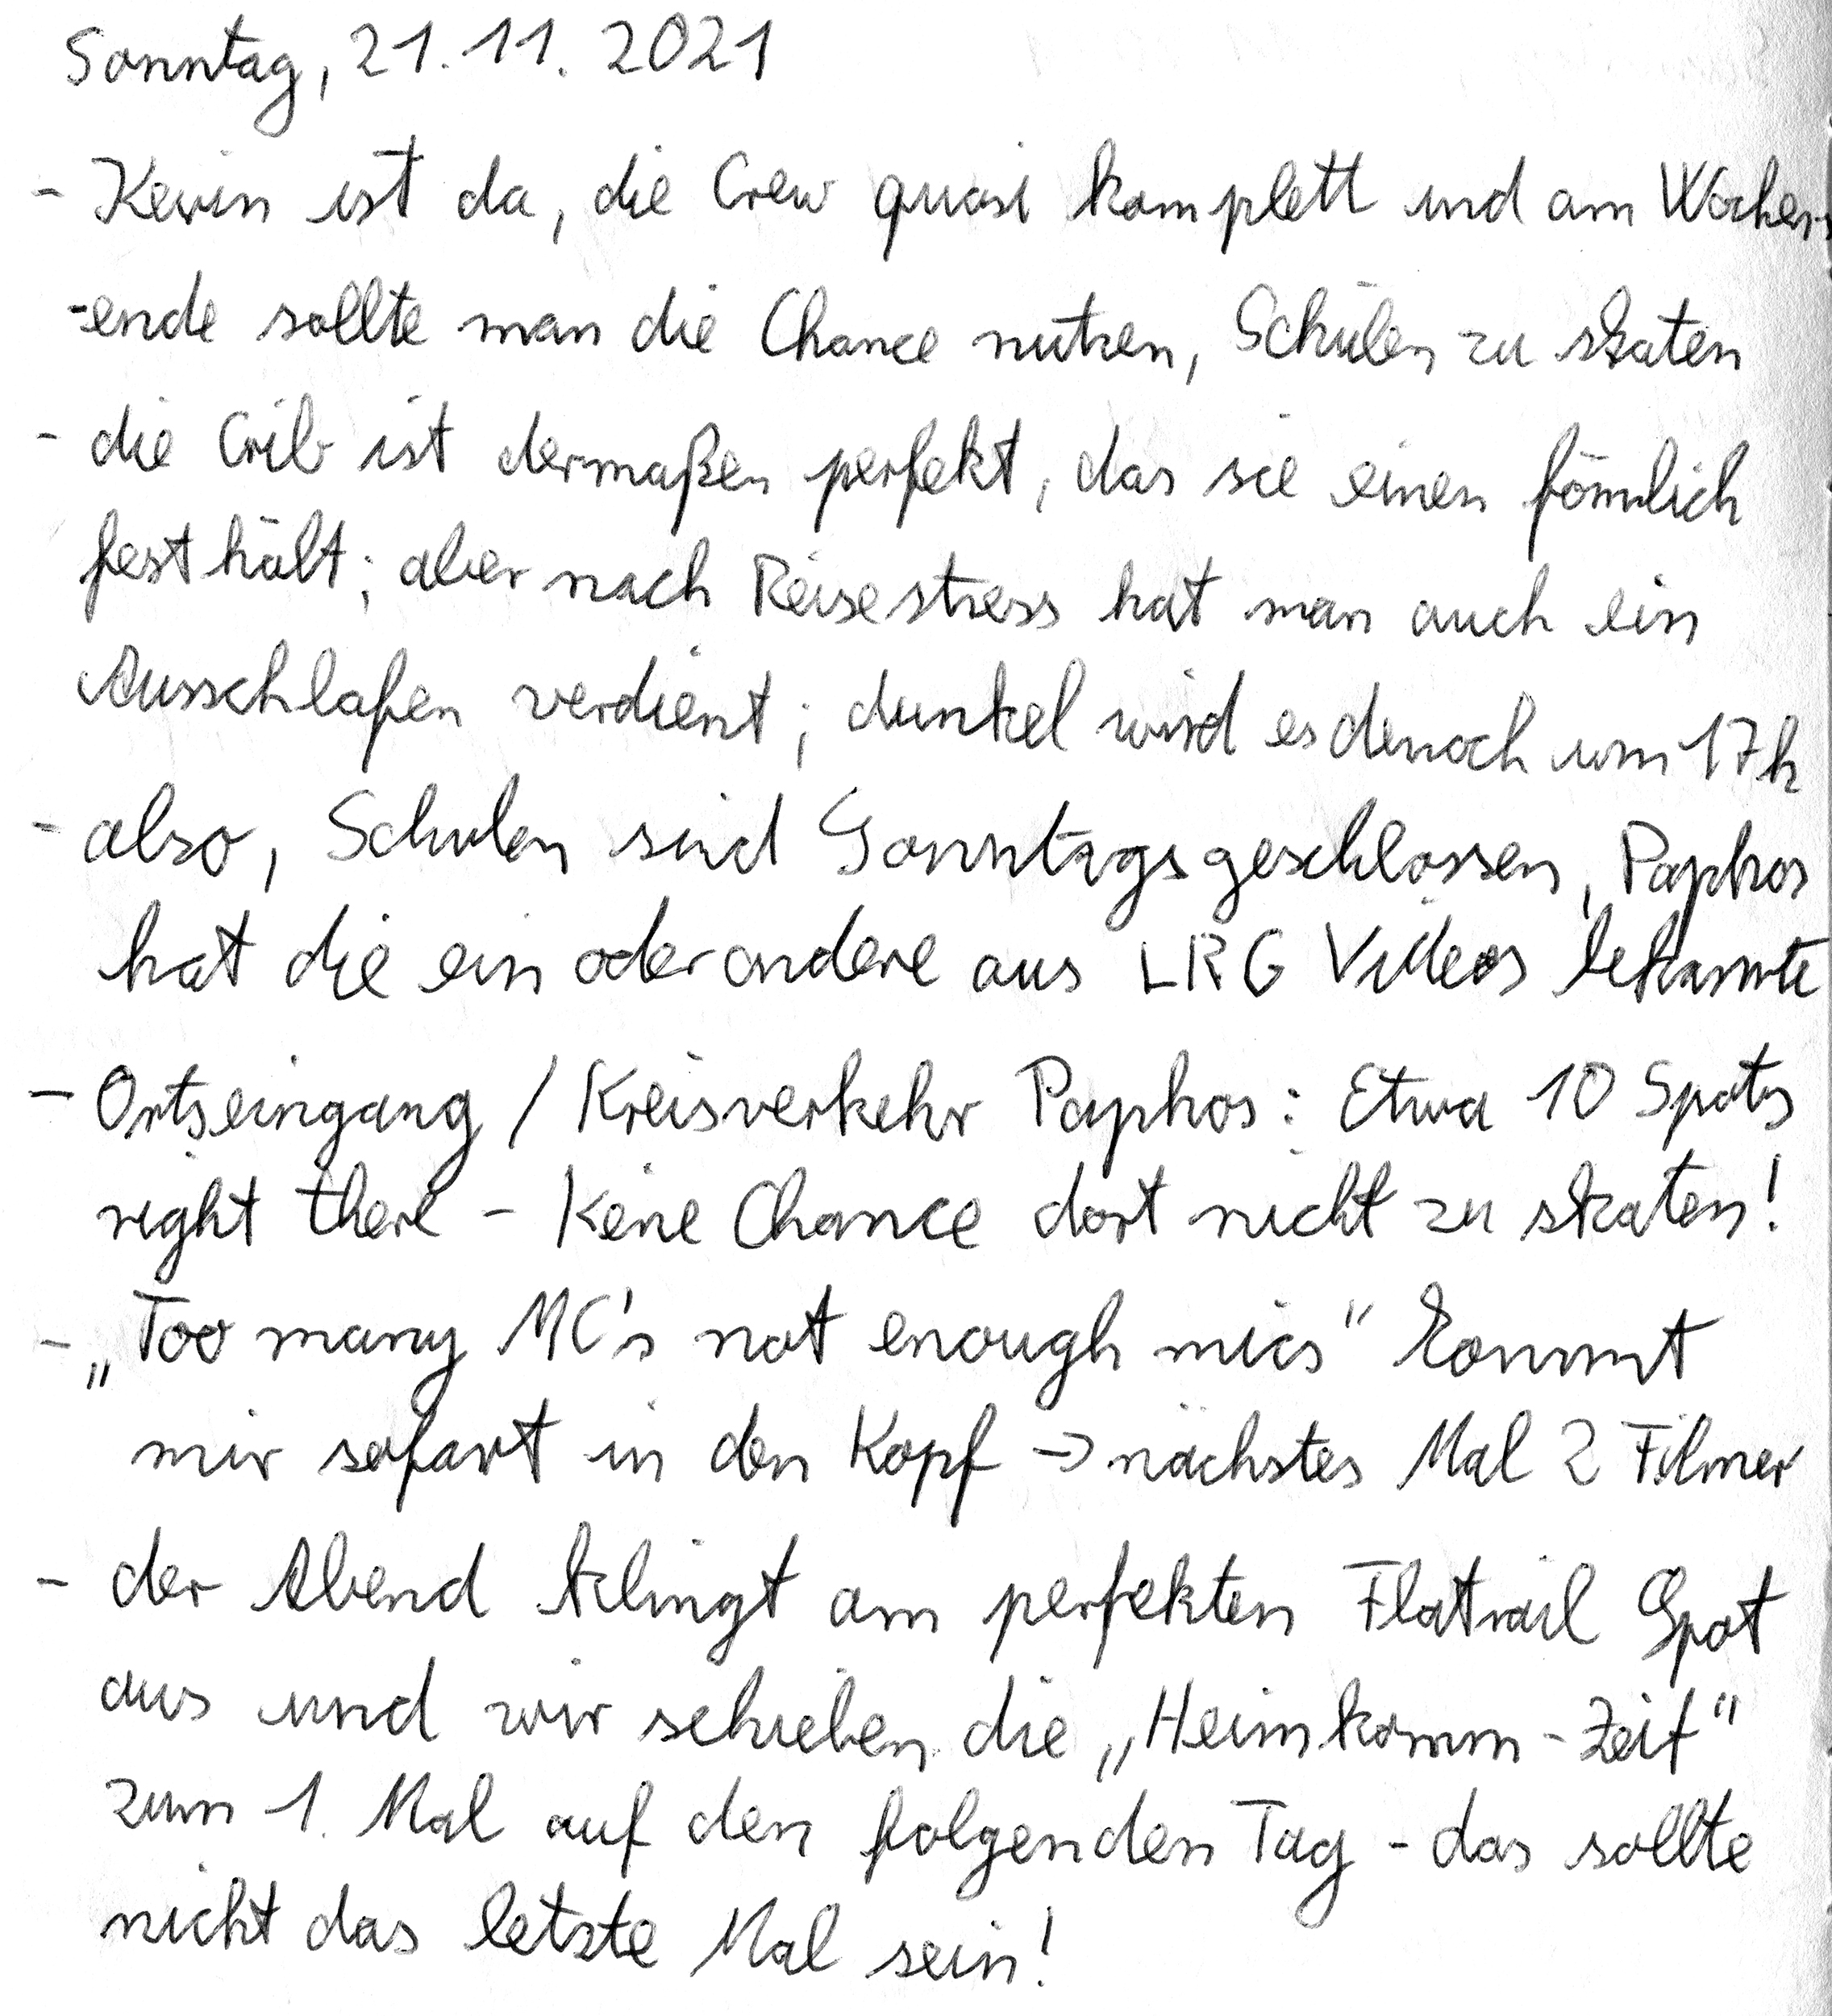 Sonntag, 21.11.2021
- Kevin ist da, die Crew quasi komplett und am Wochen-
-ende sollte man die Chance nutzen, Schulen zu skaten
- die Crib ist dermaßen perfekt, das sie einen förmlich
fest hält; aber nach Reisestress hat man auch ein
Ausschlafen verdient; dunkel wird es denoch um 17h
- also, Schulen sind Sonntags geschlossen, Paphos
hat die ein oder andere aus LRG Videos bekannte
- Ortseingang / Kreisverkehr Paphos: Etwa 10 Spots
right there - Keine Chance dort nicht zu skaten!
- „Too many MC's not enough mics" kommt
mir sofort in den Kopf → nächstes Mal 2 Filmer
- der Abend klingt am perfekten Flatrail Spot
aus und wir schieben die „Heimkomm-Zeit"
zum 1. Mal auf den folgenden Tag - das sollte
nicht das letzte Mal sein!